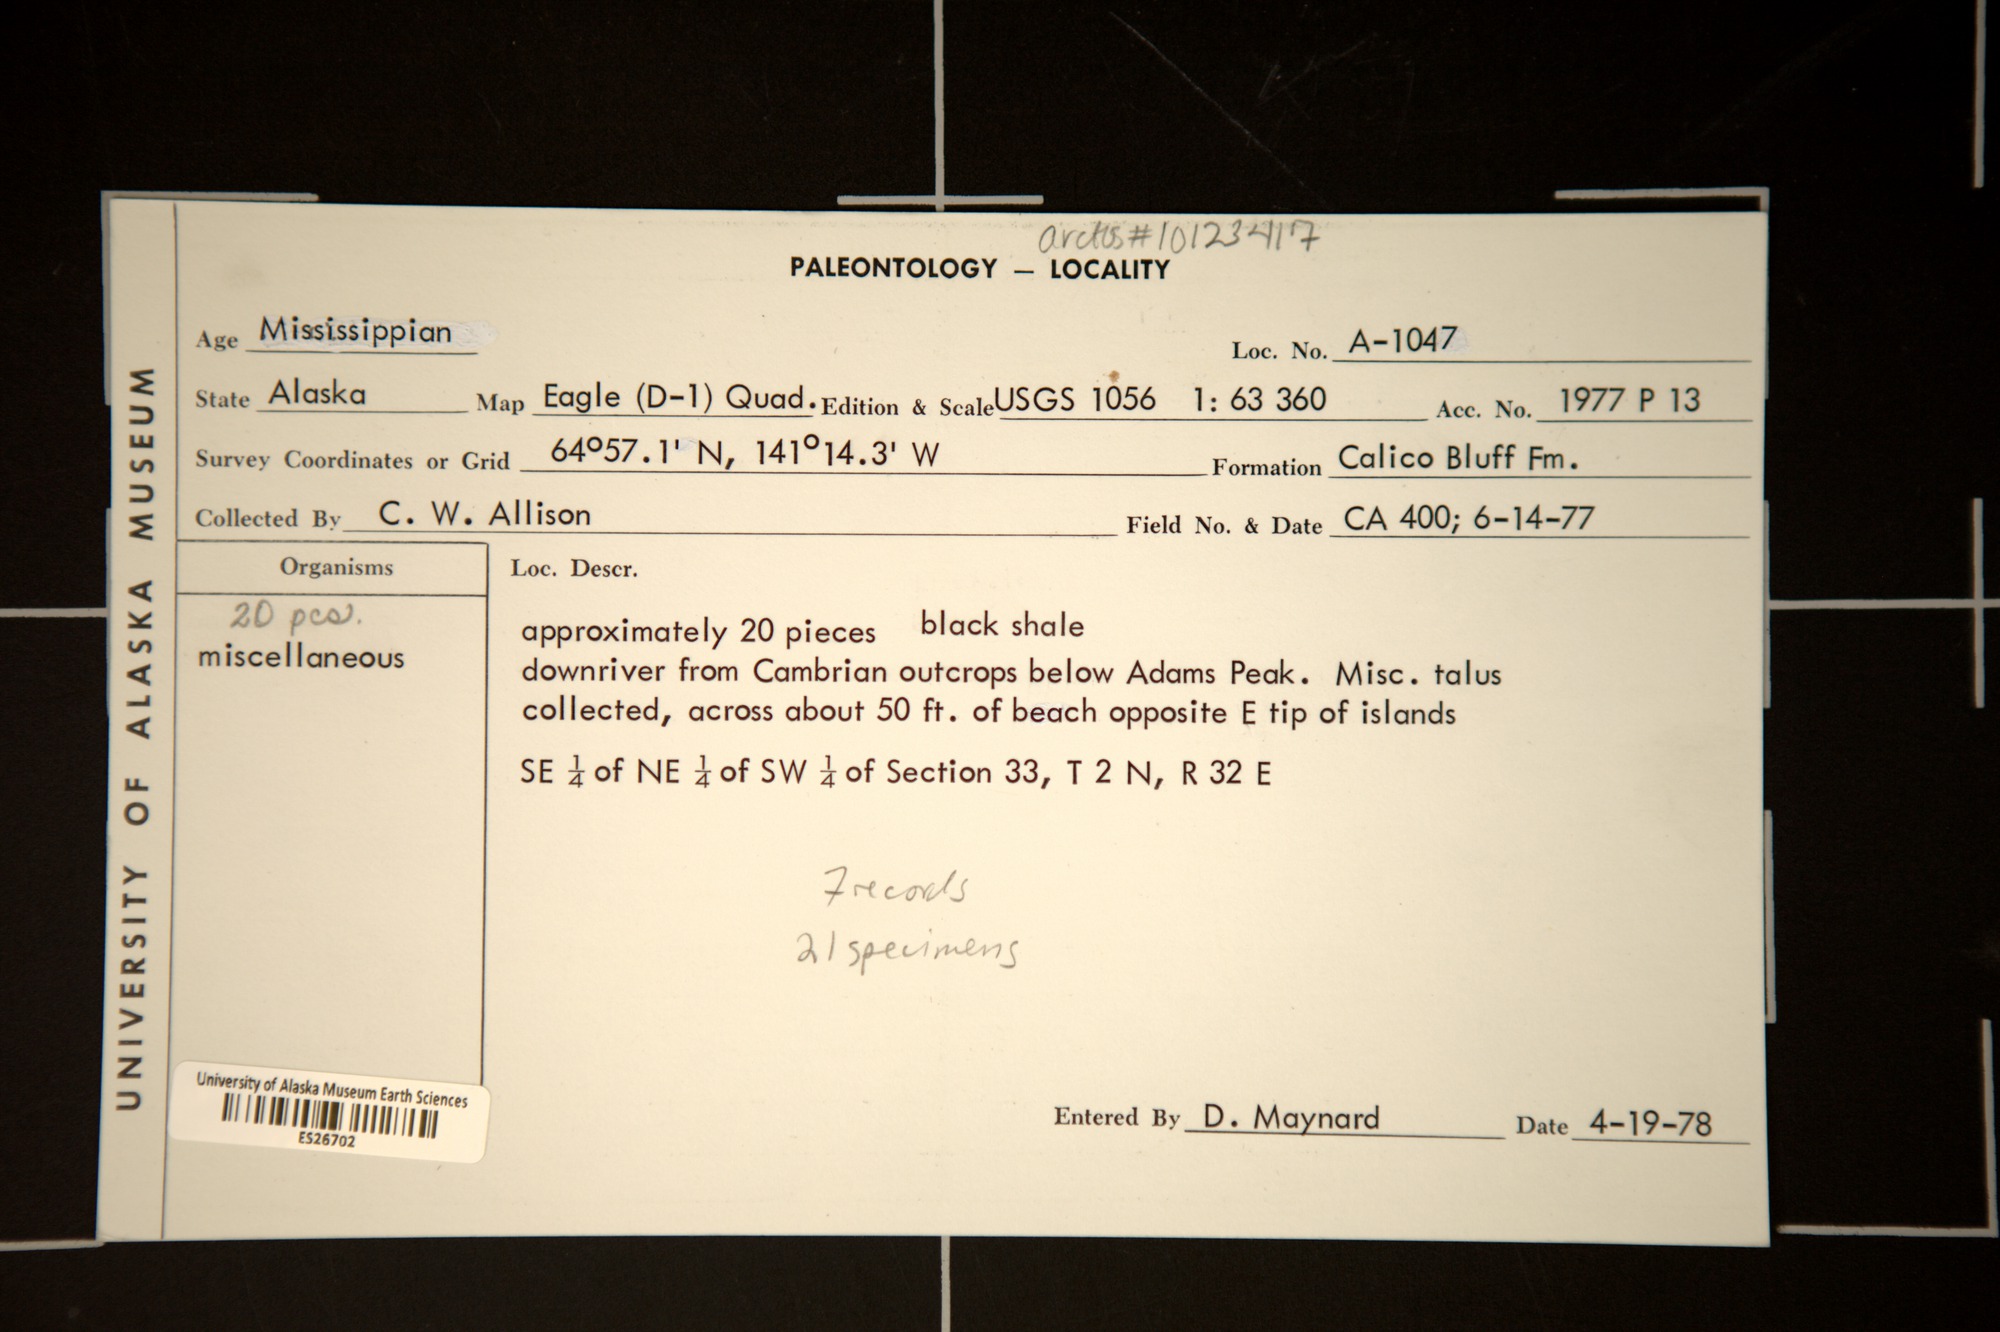 arctos#10123417
PALEONTOLOGY — LOCALITY
Age Mississippian
Loc. No. A-1047
State Alaska Map Eagle (D-1) Quad. Edition & Scale USGS 1056 1: 63 360 Acc. No. 1977 P 13
Survey Coordinates or Grid 64°57.1' N, 141°14.3' W Formation Calico Bluff Fm.
Collected By C. W. Allison Field No. & Date CA 400; 6-14-77
Organisms
20 pcs.
miscellaneous
Loc. Descr.
approximately 20 pieces black shale
downriver from Cambrian outcrops below Adams Peak. Misc. talus
collected, across about 50 ft. of beach opposite E tip of islands
SE ¼ of NE ¼ of SW ¼ of Section 33, T 2 N, R 32 E
7 records
21 specimens
Entered By D. Maynard Date 4-19-78
UNIVERSITY OF ALASKA MUSEUM
University of Alaska Museum Earth Sciences
ES26702